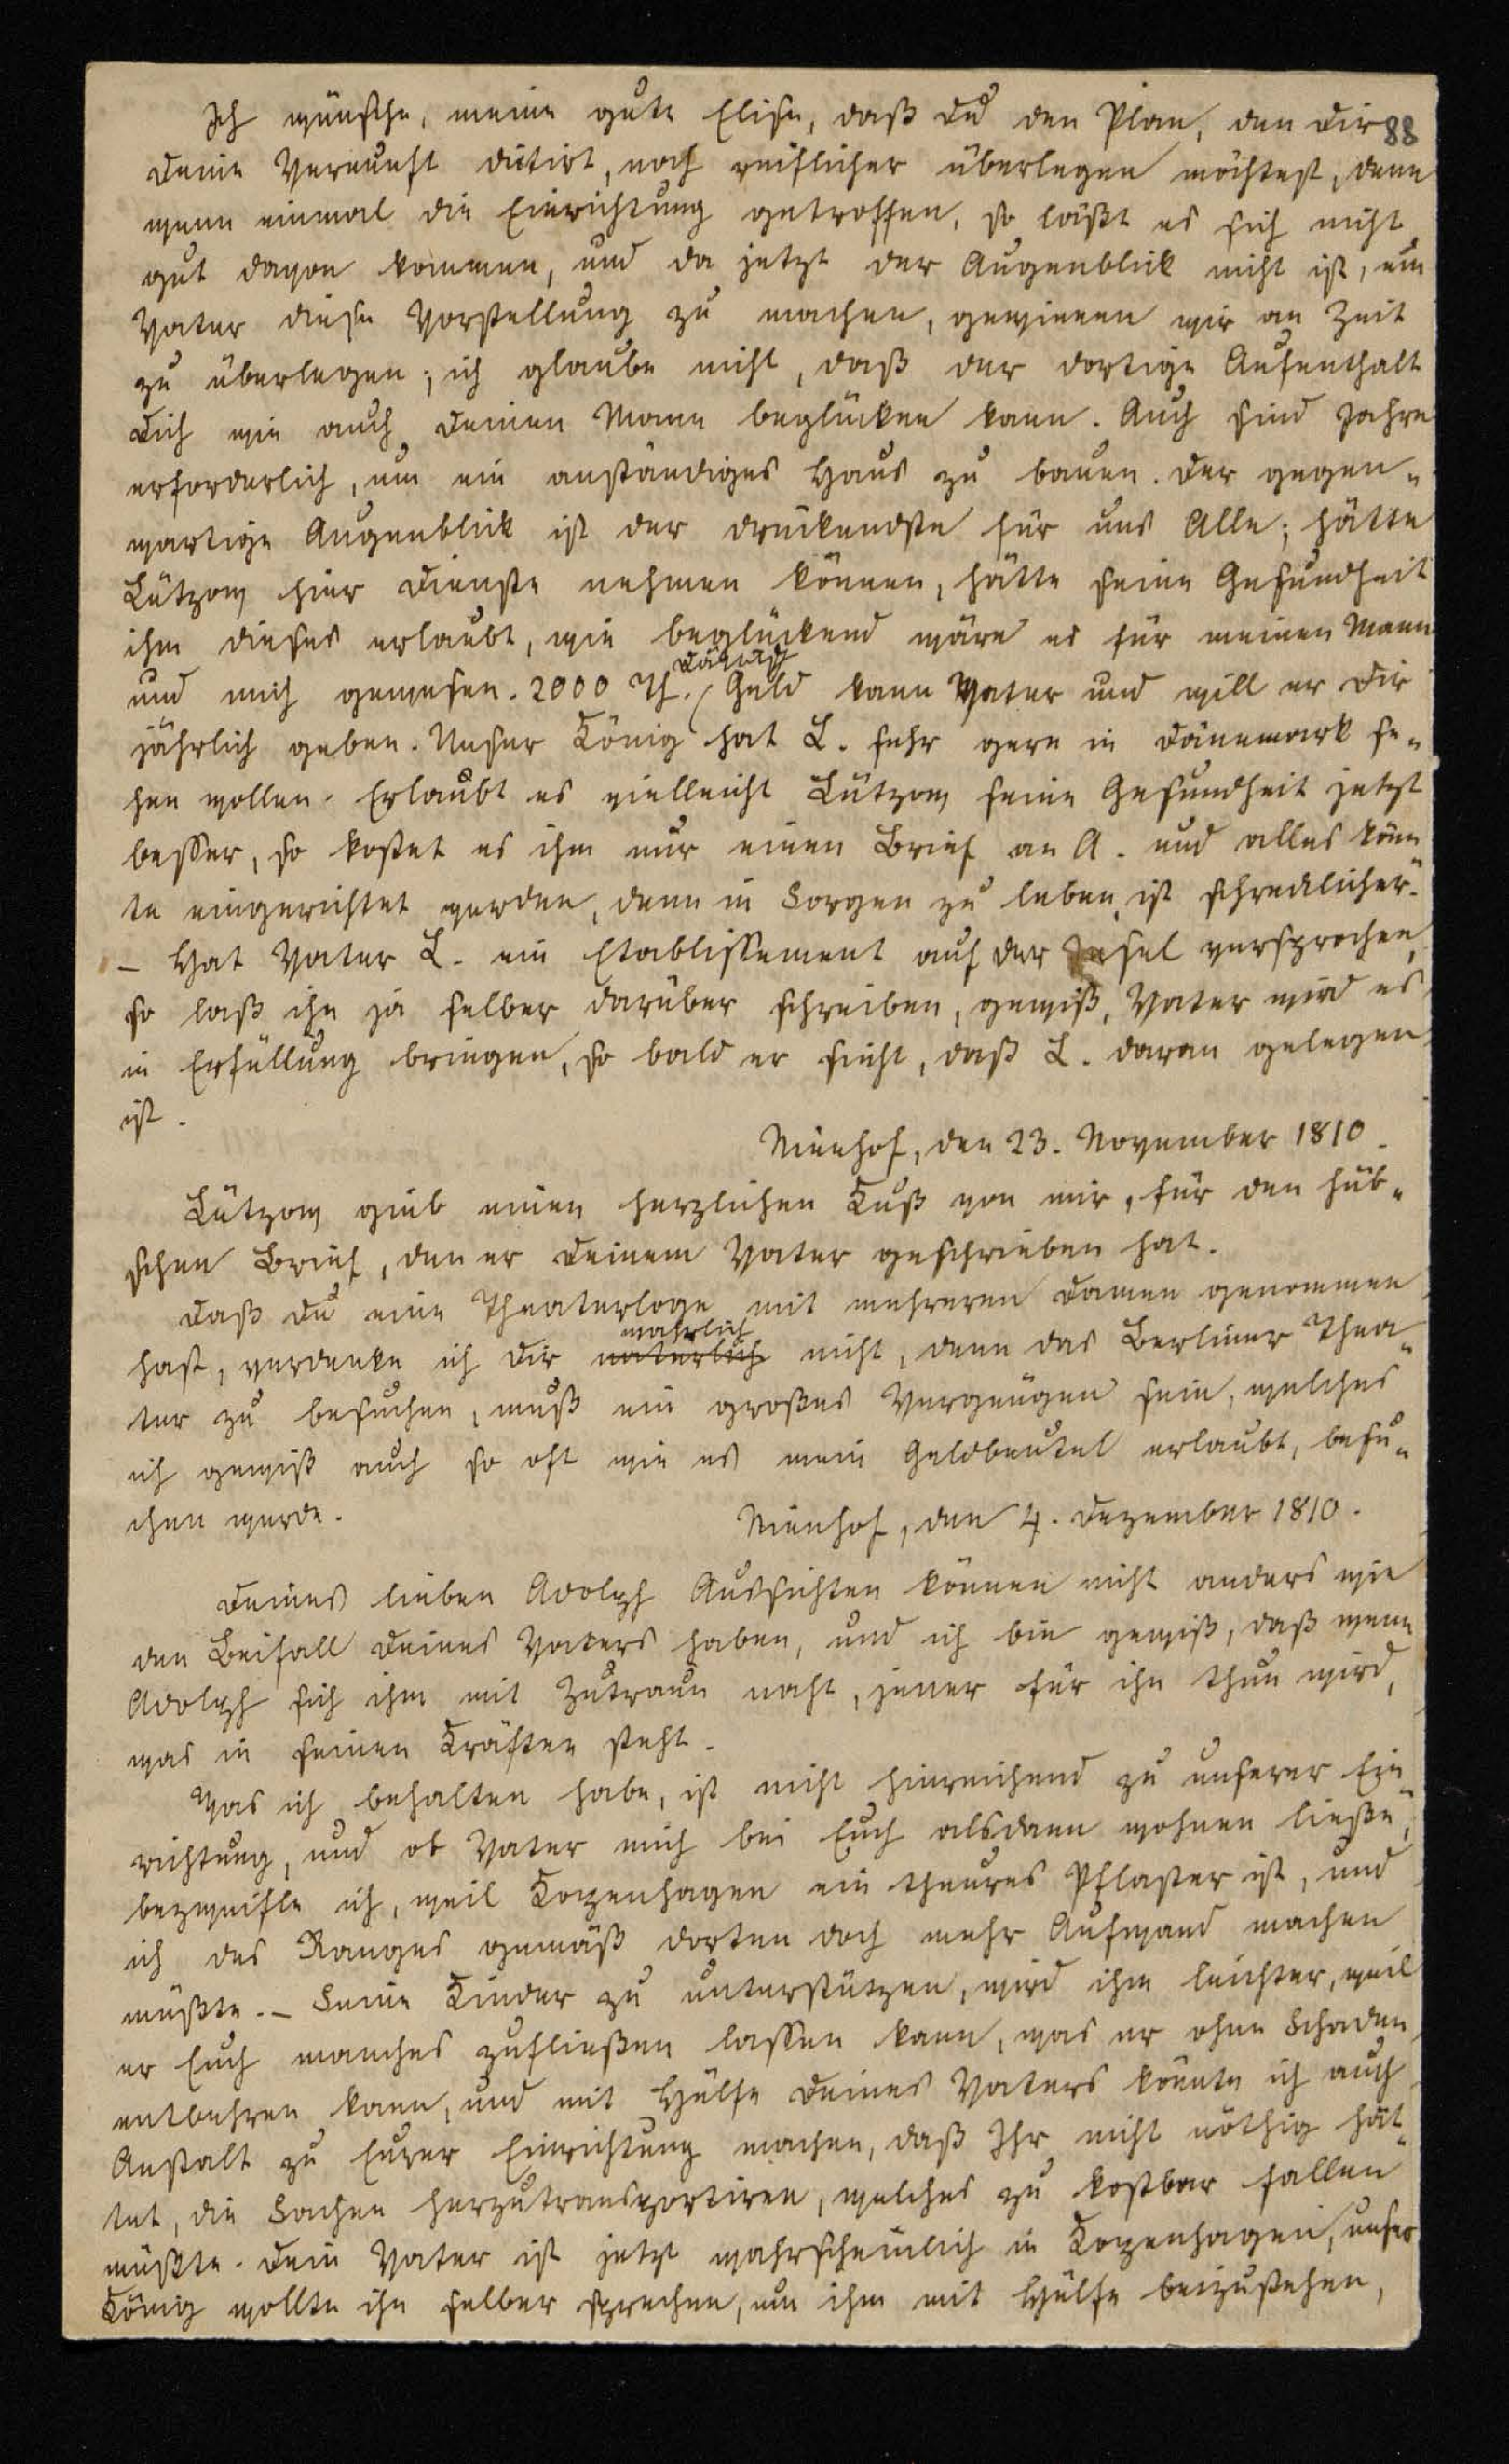 Ich wünsche, meine gute Elise, daß Du den Plan, den Dir 88
Deine Vernunft dictirt, noch reiflicher überlegen möchtest, denn
wenn einmal die Einrichtung getroffen, so läßt es sich nicht
gut davon kommen, und da jetzt der Augenblick nicht ist, um
Vater diese Vorstellung zu machen, gewinnen wir an Zeit
zu überlegen; ich glaube nicht, daß der dortige Aufenthalt
Dich wie auch Deinen Mann beglücken kann. Auch sind Jahre
erforderlich, um ein anständiges Haus zu bauen. Der gegen-
wartige Augenblick ist der drückendste für uns Alle; hätte
Lützow hier Dienste nehmen können, hätte seine Gesundheit
ihm dieses erlaubt, wie beglückend wäre es für meinen Mann
und mich gewesen. 2000 Th. Dänisch Geld kann Vater und will er Dir
jährlich geben. Unser König hat L. sehr gern in Dänemark se-
hen wollen. Erlaubt es vielleicht Lützow seine Gesundheit jetzt
besser, so kostet es ihm nur einen Brief an A. und alles könn-
te eingerichtet werden, denn in Sorgen zu leben, ist schrecklicher.
– Hat Vater L. ein Etablissement auf der Insel versprochen,
so laß ihn ja selber darüber schreiben, gewiß, Vater wird es
in Erfüllung bringen, so bald er sieht, daß L. daran gelegen
ist.
Nienhof, den 23. November 1810.
Lützow gieb einen herzlichen Kuß von mir, für den hüb-
schen Brief, den er Deinem Vater geschrieben hat.
Daß Du eine Theaterloge mit mehreren Damen genommen
hast, verdenke ich Dir natürlich wahrlich nicht, denn das Berliner Thea-
ter zu besuchen, muß ein großes Vergnügen sein, welches
ich gewiß auch so oft wie es mein Geldbeutel erlaubt, besu-
chen werde.
Nienhof, den 4. Dezember 1810.
Deines lieben Adolph Aussichten können nicht anders wie
den Beifall Deines Vaters haben, und ich bin gewiß, daß wenn
Adolph sich ihm mit Zutraun naht, jener für ihn thun wird,
was in seinen Kräften steht.
Was ich behalten habe, ist nicht hinreichend zu unserer Ein-
richtung, und ob Vater mich bei Euch alsdann wohnen ließe,
bezweifle ich, weil Kopenhagen ein theures Pflaster ist, und
ich des Ranges gemäß dorten doch mehr Aufwand machen
müßte. – Seine Kinder zu unterstützen, wird ihm leichter, weil
er Euch manches zufließen lassen kann, was er ohne Schaden
entbehren kann, und mit Hülfe Deines Vaters könnte ich auch
Anstalt zu Eurer Einrichtung machen, daß Ihr nicht nöthig hät-
tet, die Sachen herzutransportiren, welches zu kostbar fallen
müßte. Dein Vater ist jetzt wahrscheinlich in Kopenhagen, unser
König wollte ihn selber sprechen, um ihm mit Hülfe beizustehen,